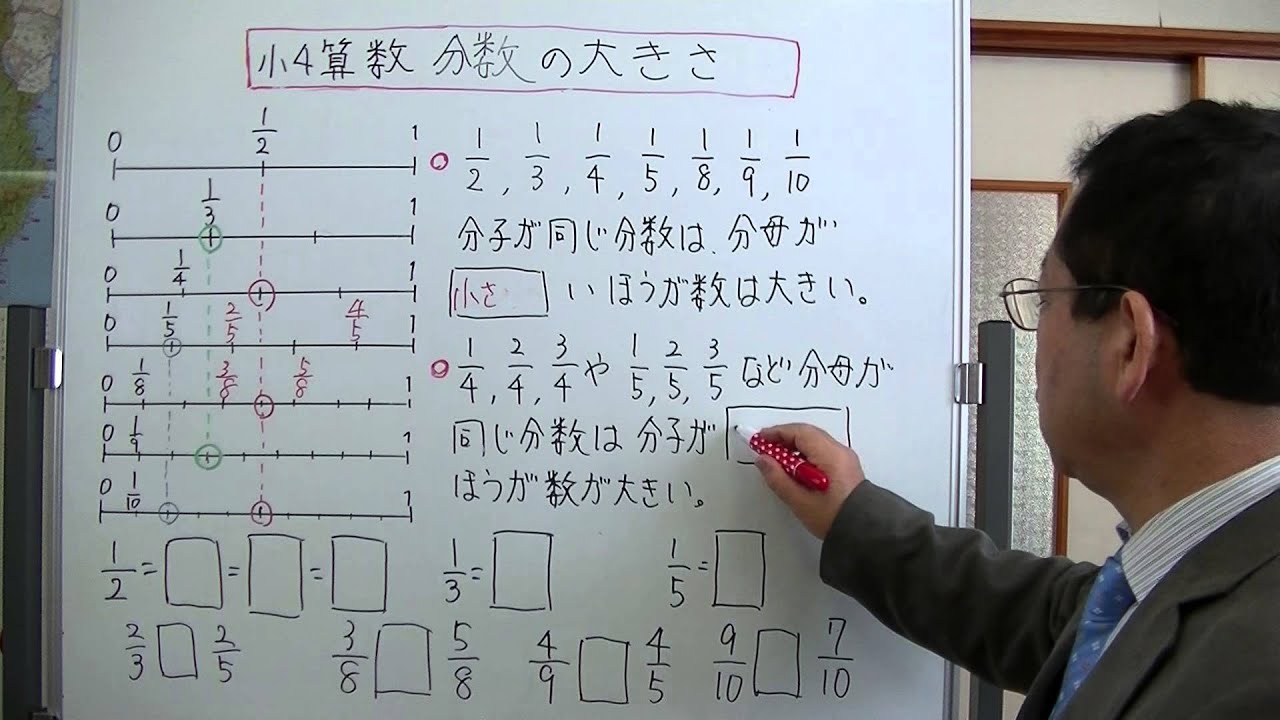 小4算数 分数の大きさ
0 1/2 1
0 1/3 1
0 1/4 1
0 1/5 2/5 4/5 1
0 1/8 3/8 5/8 1
0 1/9 1
0 1/10 1
○ 1/2, 1/3, 1/4, 1/5, 1/8, 1/9, 1/10
分子が同じ分数は、分母が
小さ いほうが数は大きい。
○ 1/4, 2/4, 3/4 や 1/5, 2/5, 3/5 など分母が
同じ分数は 分子が
ほうが数が大きい。
1/2 = □ = □ = □ 1/3 = □ 1/5 = □
2/3 □ 2/5 3/8 □ 5/8 4/9 □ 4/5 9/10 □ 7/10